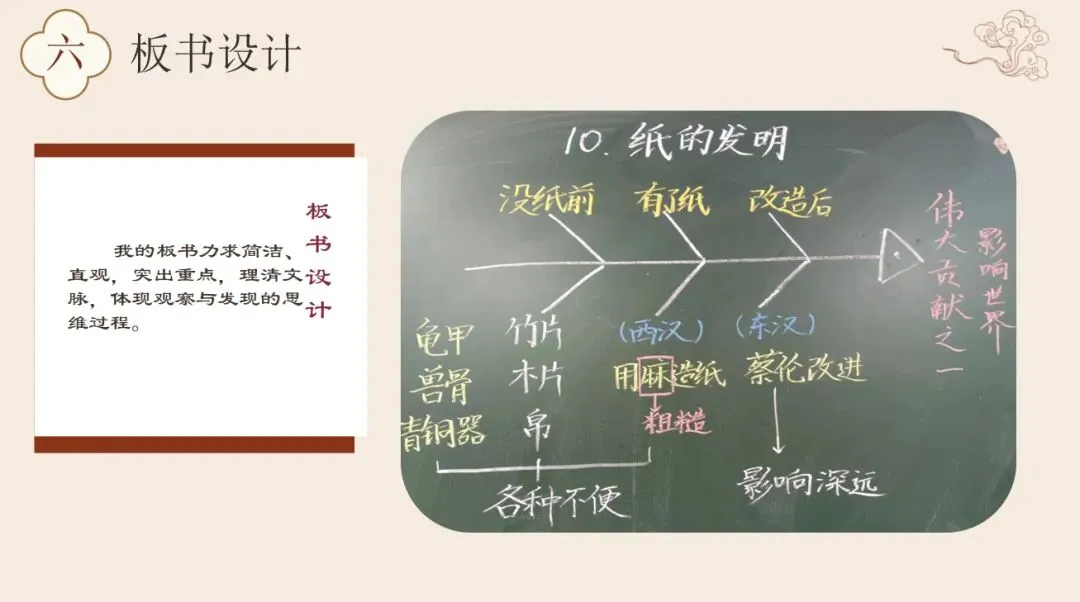 六
板书设计
板书设计
我的板书力求简洁、
直观，突出重点，理清文
脉，体现观察与发现的思
维过程。
10. 纸的发明
没纸前 有了纸 改造后
龟甲 竹片 （西汉） （东汉）
兽骨 木片 用麻造纸 蔡伦改进
青铜器 帛 粗糙
各种不便 影响深远
伟大贡献之一
影响世界